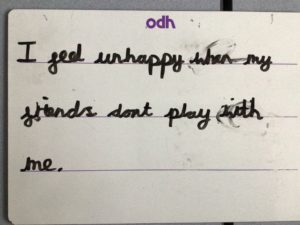 odh
I feel unhappy when my
friends dont play with
me.